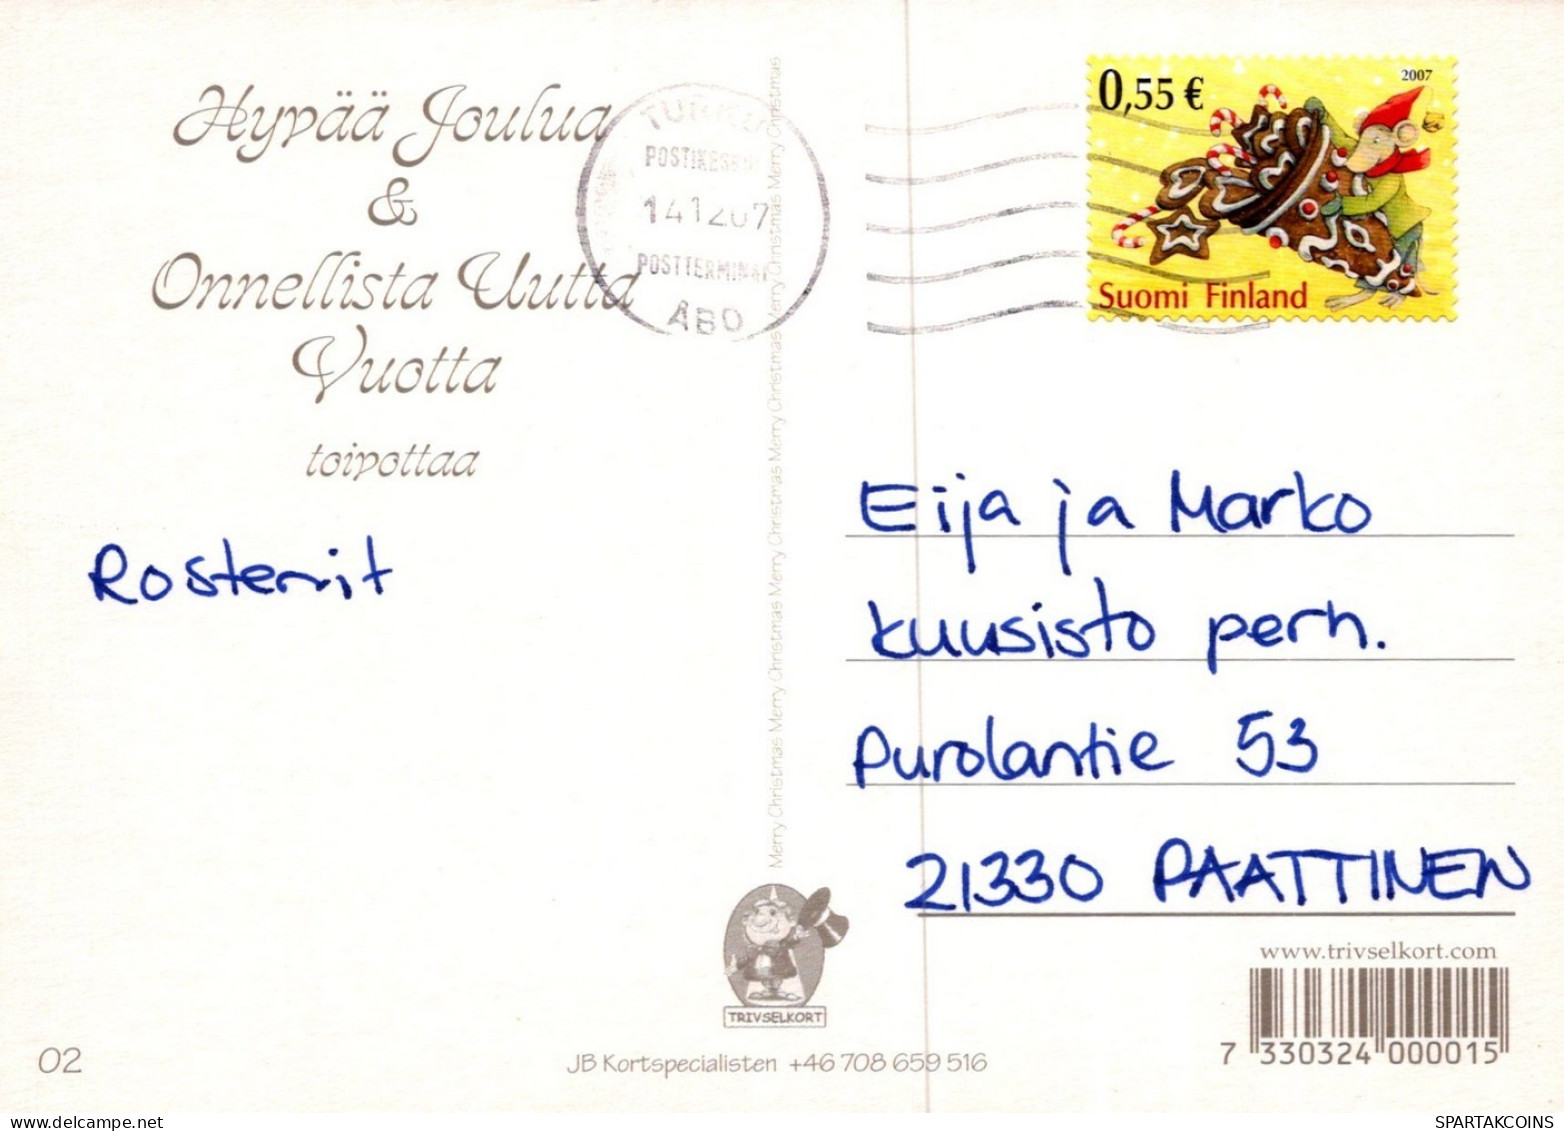 Hypää Joulua
&
Onnellista Uutta
Vuotta
toipottaa
Rosternit
02
TURKU
POSTIKESKUS
141207
POSTTERMINAL
ÅBO
Merry Christmas Merry Christmas Merry Christmas Merry Christmas Merry Christmas Merry Christmas Merry Christmas Merry Christmas
TRIVSELKORT
JB Kortspecialisten +46 708 659 516
0,55 €
2007
Suomi Finland
Eija ja Marko
Kuusisto perh.
Purolantie 53
21330 PAATTINEN
www.trivselkort.com
7 330324 000015
SPARTAKCOINS